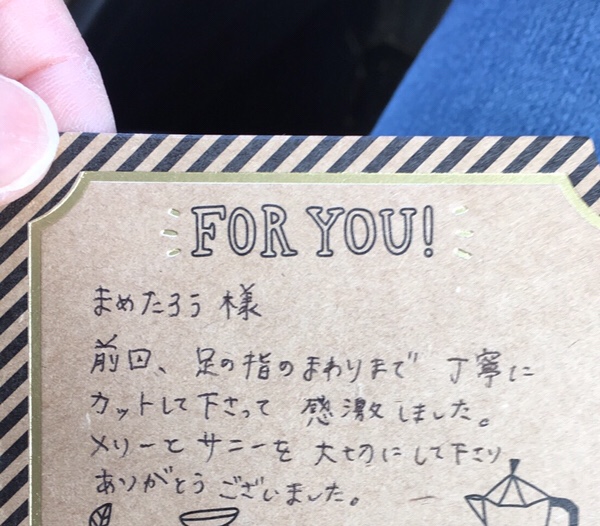 FOR YOU!
まめたろう 様
前回、足の指のまわりまで 丁寧に
カットして下さって 感激しました。
メリーと サニーを 大切に して下さり
ありがとう ございました。